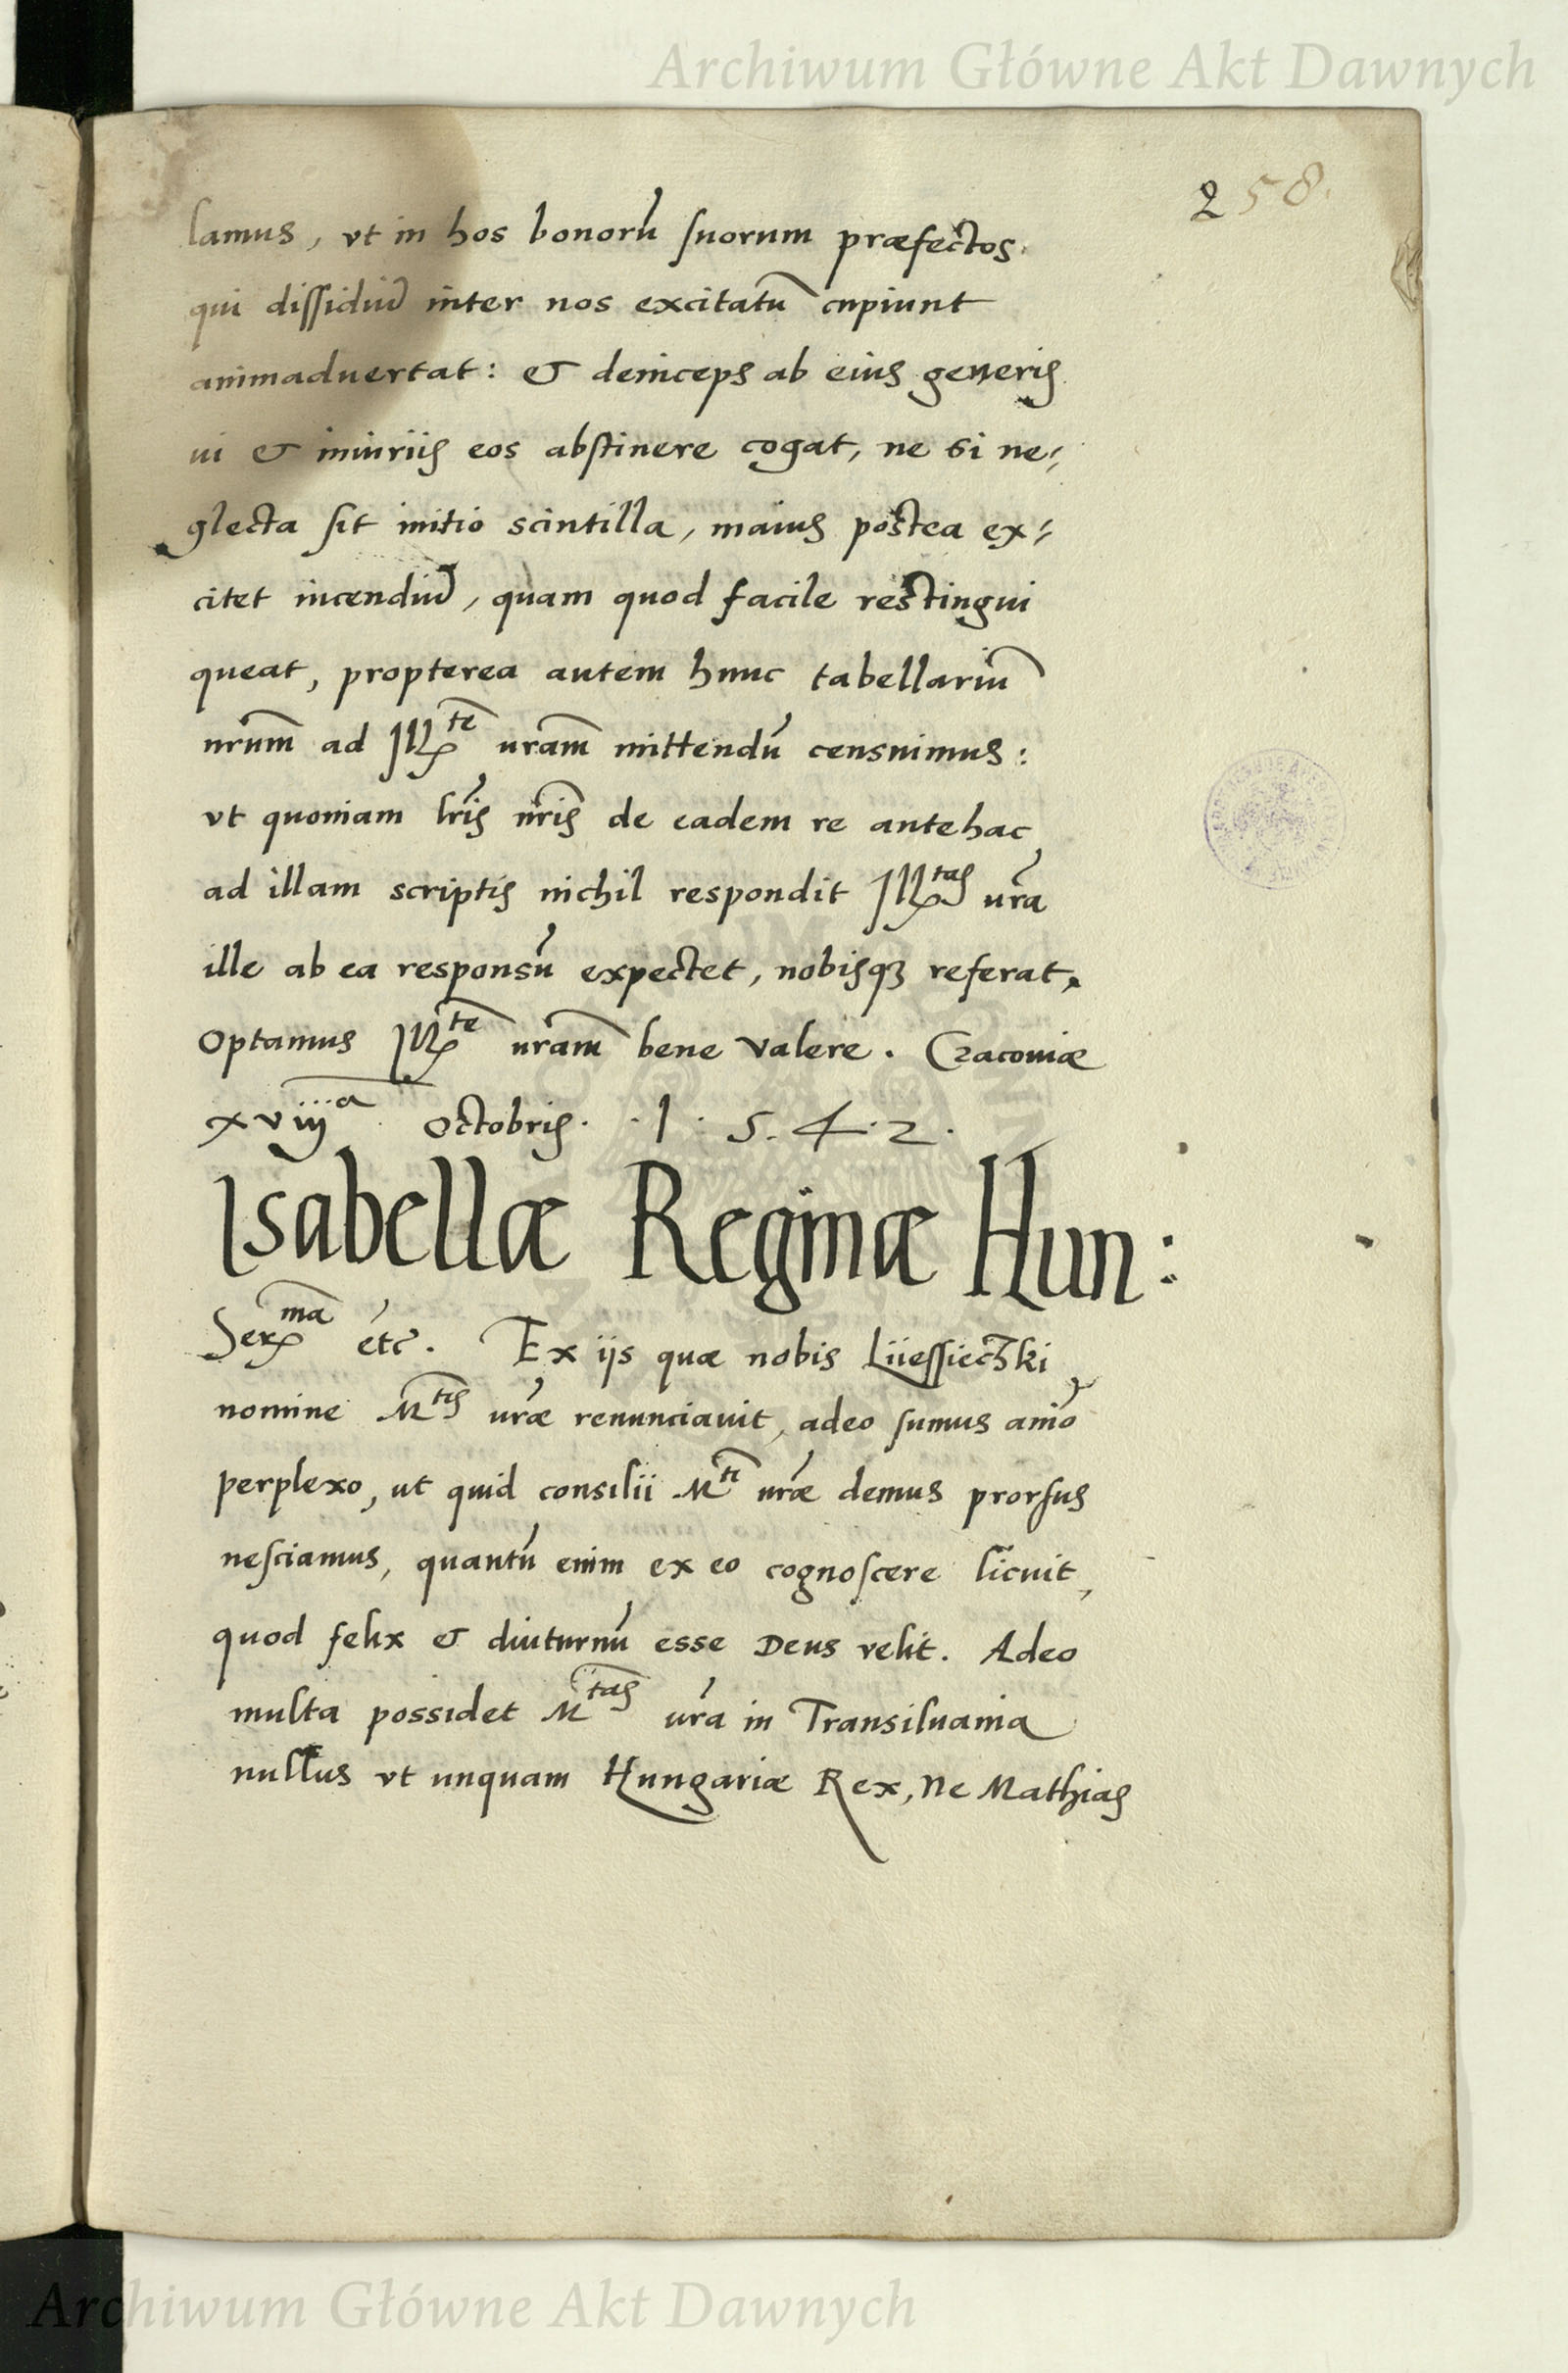 Archiwum Główne Akt Dawnych
258.
lamus, vt in hos bonorū suorum præfectos.
qui dissidiū inter nos excitatū cupiunt
animaduertat: & deinceps ab eius generis
ui & iniuriis eos abstinere cogat, ne si ne⸗
glecta sit initio scintilla, maius postea ex⸗
citet incendiū, quam quod facile restingui
queat, propterea autem hunc tabellariū
nrum̄ ad Ill^te uram̄ mittendū censuimus:
vt quoniam lris nris de eadem re antehac
ad illam scriptis nichil respondit Ill^tas ura
ille ab ea responsū expectet, nobisqꝫ referat,
Optamus Ill^te uram̄ bene valere. Craconiæ
xviij^a Octobris. .1.5.4.2.
Isabellæ Reginæ Hun:
Ser^ma etc. Ex ijs quæ nobis Liiessieczki
nomine M^tis uræ renunciauit, adeo sumus anīo
perplexo, ut quid consilii M^ti uræ demus prorsus
nesciamus, quantū enim ex eo cognoscere licuit,
quod felix & diuturnū esse Deus velit. Adeo
multa possidet M^tas ura in Transiluania
nullus vt unquam Hungariæ Rex, Ne Mathias
Archiwum Główne Akt Dawnych